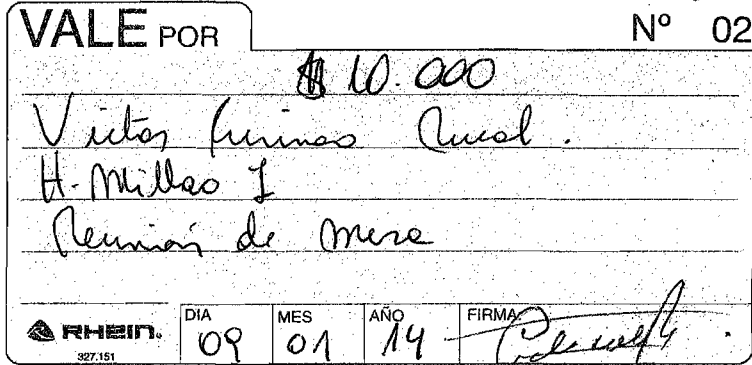 VALE POR
Nº 02
$ 10.000
Victor Rural.
H. Millao I
Reunión de mesa
RHEIN.
327.151
DIA 09
MES 01
AÑO 14
FIRMA